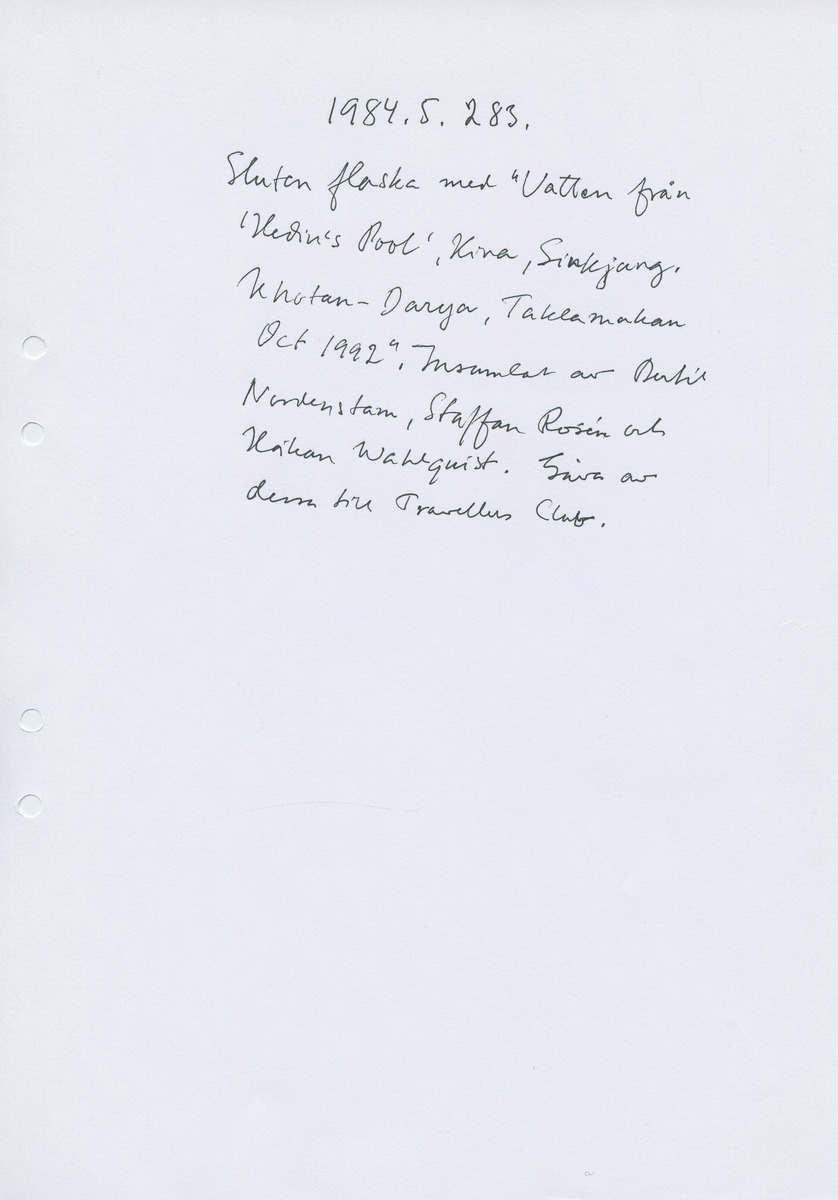 1984.5.283.
Sluten flaska med "Vatten från
'Hedin's Pool', Kina, Sinkjang.
Khotan-Darya, Taklamakan
Oct 1992". Insamlat av Bertil
Nordenstam, Staffan Rosén och
Håkan Wahlquist. Gåva av
dessa till Travellers Club.